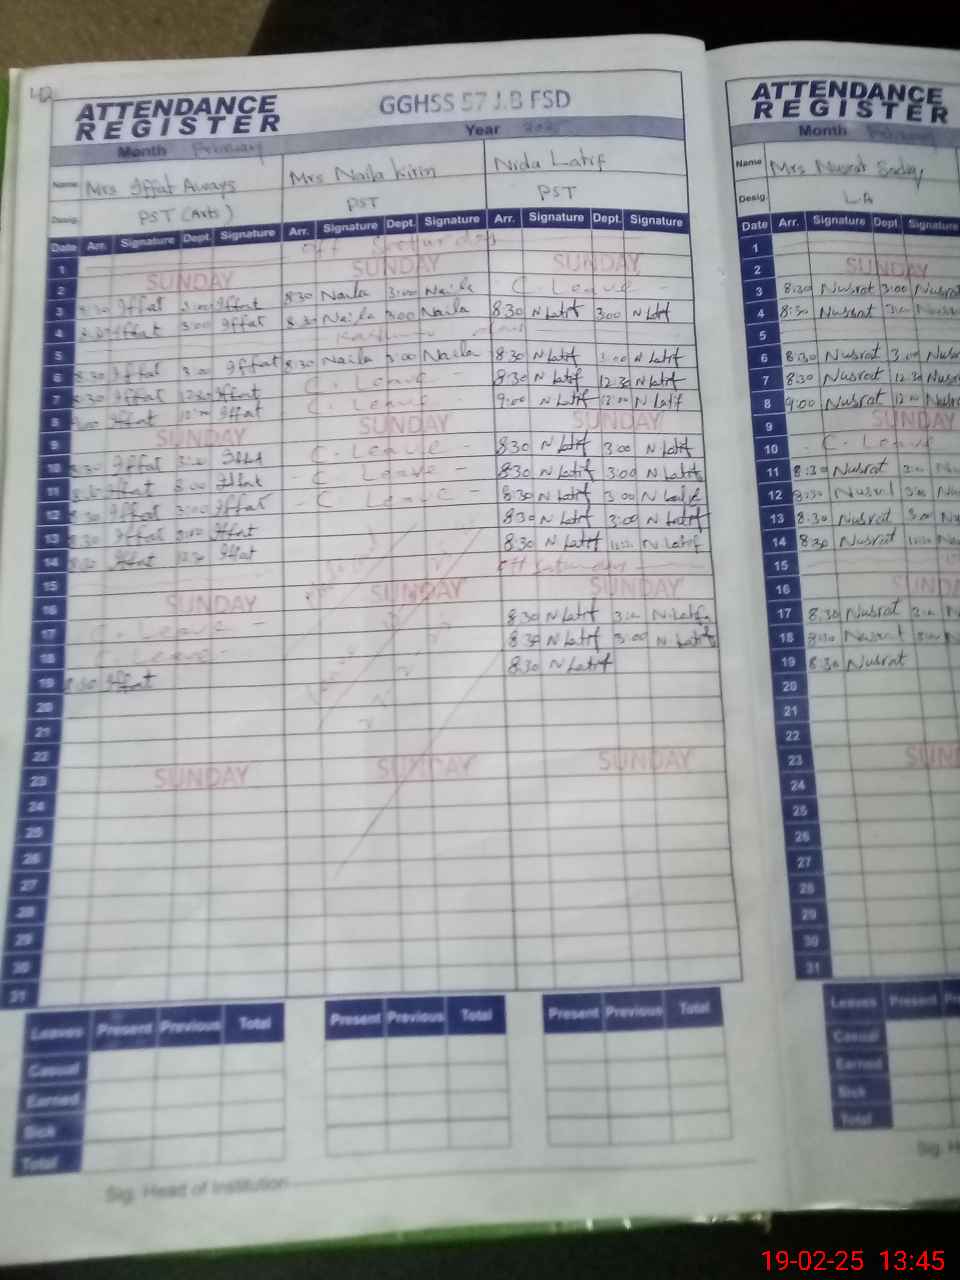 42
ATTENDANCE REGISTER
GGHSS 57 J.B FSD
Month February Year 2025
Name Mrs Iffat Aways Mrs Naila Kirin Nida Latif
Desig. PST (Arts) PST PST
Date Arr. Signature Dept. Signature Arr. Signature Dept. Signature Arr. Signature Dept. Signature
1 off
2 SUNDAY SUNDAY SUNDAY
3 8:30 Iffat 3:00 Iffat 8:30 Naila 3:00 Naila C. Leave
4 8:30 Iffat 3:00 Iffat 8:30 Naila 3:00 Naila 8:30 N Latif 3:00 N Latif
5
6 8:30 Iffat 3:00 Iffat 8:30 Naila 3:00 Naila 8:30 N Latif 3:00 N Latif
7 8:30 Iffat 12:30 Iffat C. Leave 8:30 N Latif 12:30 N Latif
8 9:00 Iffat 12:00 Iffat C. Leave 9:00 N Latif 12:00 N Latif
9 SUNDAY SUNDAY SUNDAY
10 8:30 Iffat 3:00 Iffat C. Leave 8:30 N Latif 3:00 N Latif
11 8:30 Iffat 3:00 Iffat C. Leave 8:30 N Latif 3:00 N Latif
12 8:30 Iffat 3:00 Iffat C. Leave 8:30 N Latif 3:00 N Latif
13 8:30 Iffat 3:00 Iffat 8:30 N Latif 3:00 N Latif
14 8:30 Iffat 12:30 Iffat 8:30 N Latif N Latif
15 off Saturday
16 SUNDAY SUNDAY SUNDAY
17 C. Leave 8:30 N Latif 3:00 N Latif
18 C. Leave 8:30 N Latif 3:00 N Latif
19 8:30 Iffat 8:30 N Latif
20
21
22
23 SUNDAY SUNDAY SUNDAY
24
25
26
27
28
29
30
31
Leaves Present Previous Total Present Previous Total Present Previous Total
Casual
Earned
Sick
Total
Sig. Head of Institution
ATTENDANCE REGISTER
Month February
Name Mrs Nusrat
Desig. L.A
Date Arr. Signature Dept. Signature
1
2 SUNDAY
3 8:30 Nusrat 3:00 Nusrat
4 8:30 Nusrat
5
6 8:30 Nusrat 3:00
7 8:30 Nusrat 12:30 Nusrat
8 9:00 Nusrat 12:00 Nusrat
9 SUNDAY
10 C. Leave
11 8:30 Nusrat 3:00
12 8:30 Nusrat 3:00
13 8:30 Nusrat 3:00
14 8:30 Nusrat
15
16 SUND
17 8:30 Nusrat 3:00
18 8:30 Nusrat
19 8:30 Nusrat
20
21
22
23 SUN
24
25
26
27
28
29
30
31
Leaves Present
Casual
Earned
Sick
Total
Sig.
19-02-25 13:45